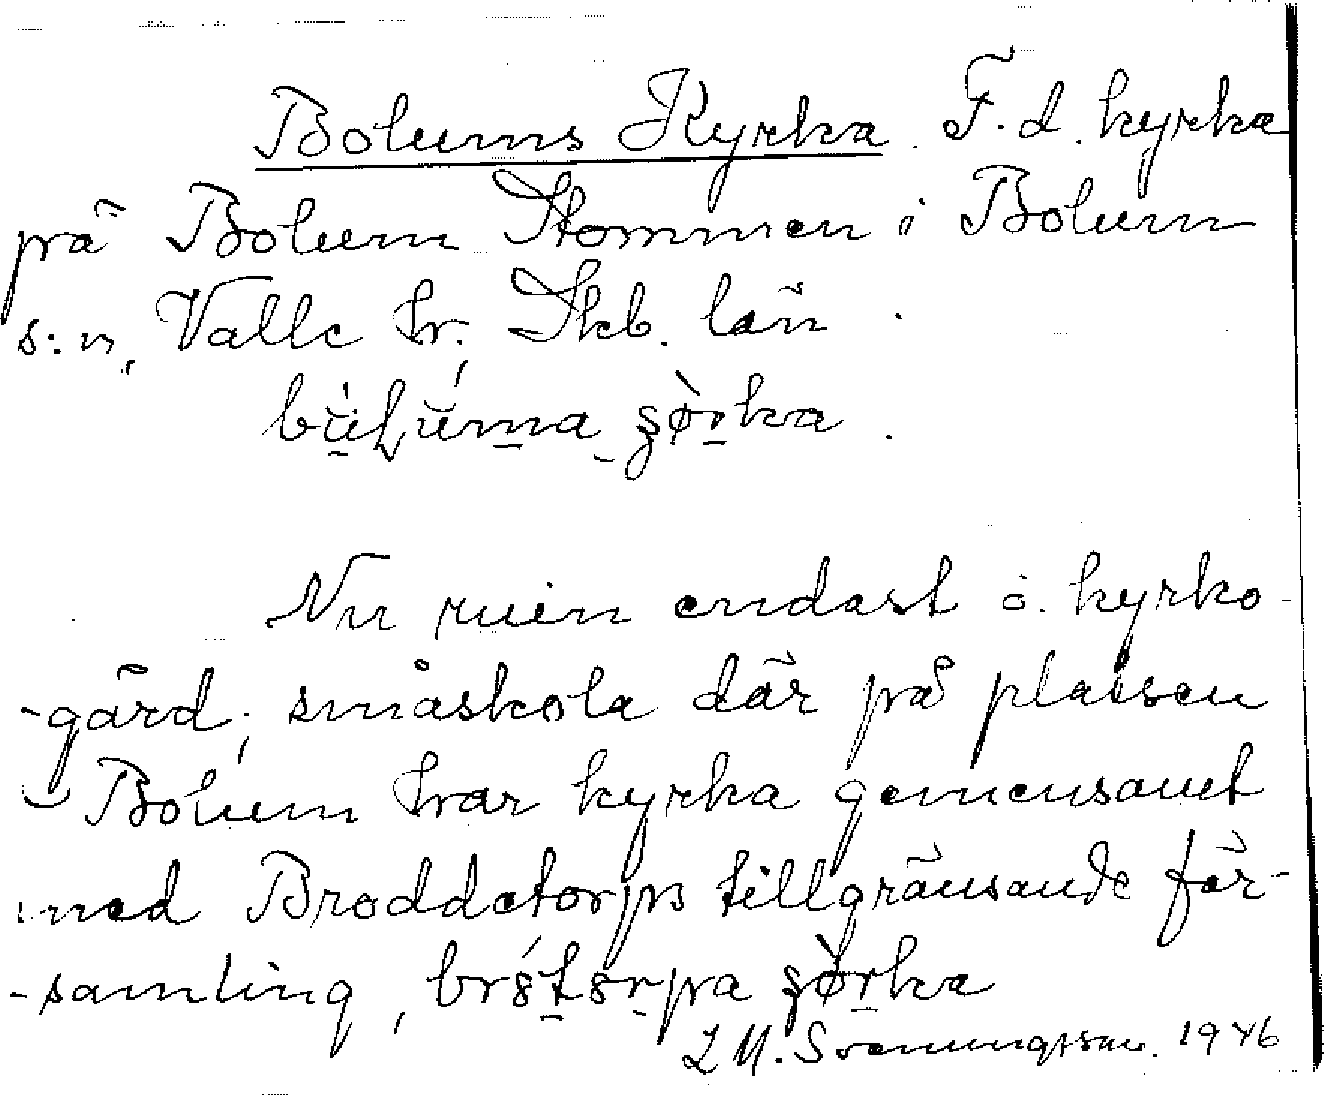 Bolums Kyrka. F.d. kyrka
på Bolum Stommen i Bolum
s:n, Valle hr; Skb. län.

Nu ruin endast o. kyrko-
-gård; småskola där på platsen
- Bolum har kyrka gemensamt
med Broddetorps tillgränsande för-
-samling,
L M. Svenungsson. 1946